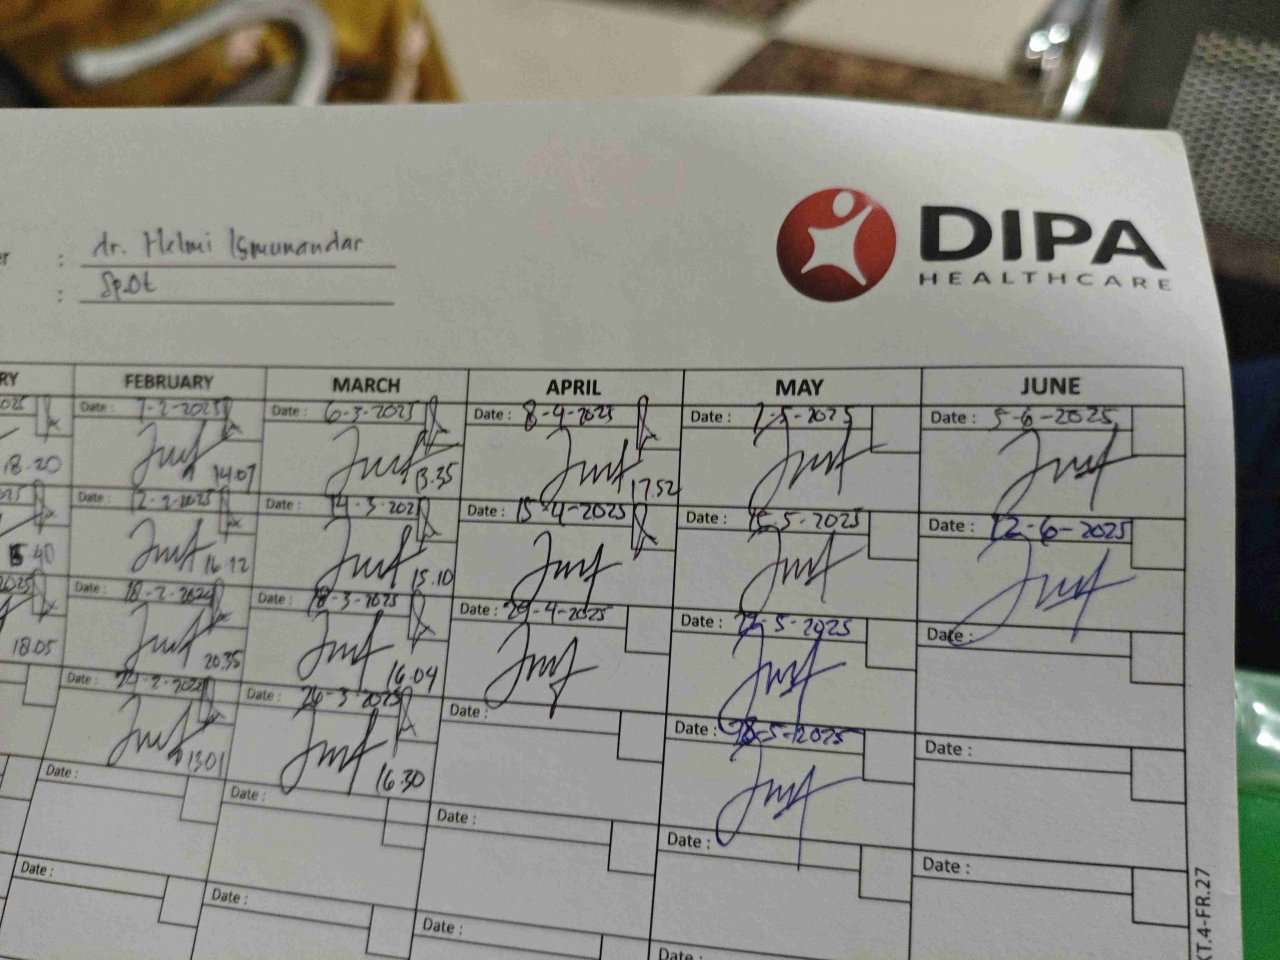 DIPA
HEALTHCARE
: dr. Helmi Ismunandar
: SpOt
FEBRUARY MARCH APRIL MAY JUNE
Date : 7-2-2025 Date : 6-3-2025 Date : 8-4-2025 Date : 7-5-2025 Date : 5-6-2025
18.20 14.07 13.35 17.52
Date : 12-2-2025 Date : 14-3-202 Date : 15-4-2025 Date : 15-5-2025 Date : 12-6-2025
40 16.12 15.10
Date : 18-2-202 Date : 18-3-2025 Date : 29-4-2025 Date : 22-5-2025 Date :
18.05 20.35 16.04
Date : Date : 26-3-2025 Date : Date : 28-5-2025 Date :
13.01 16.30
Date : Date : Date : Date : Date :
Date : Date : Date : Date :
KT.4-FR.27